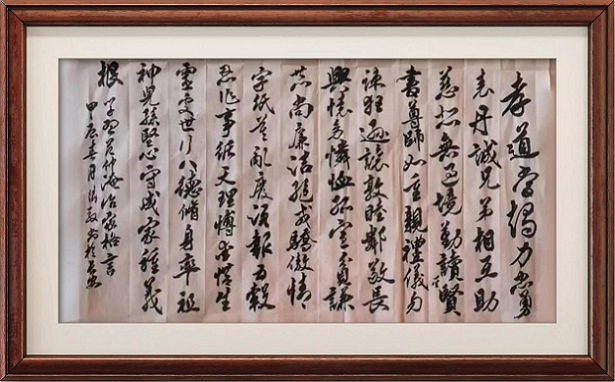 孝道當竭力忠勇
表丹誠兄弟相互助
慈悲無過境勤讀賢
書尊師如重親禮儀勿
疎狂遜讓敦睦鄰敬長
與懷幼憐恤孤寡貧謙
恭尚廉潔絕戒驕傲情
字紙莫亂廢須報五穀
恩作事循天理博愛惜生
靈處世行八德脩身率祖
神兒孫堅心守成家種義
根 范仲淹治家格言
甲辰春月 書於長安